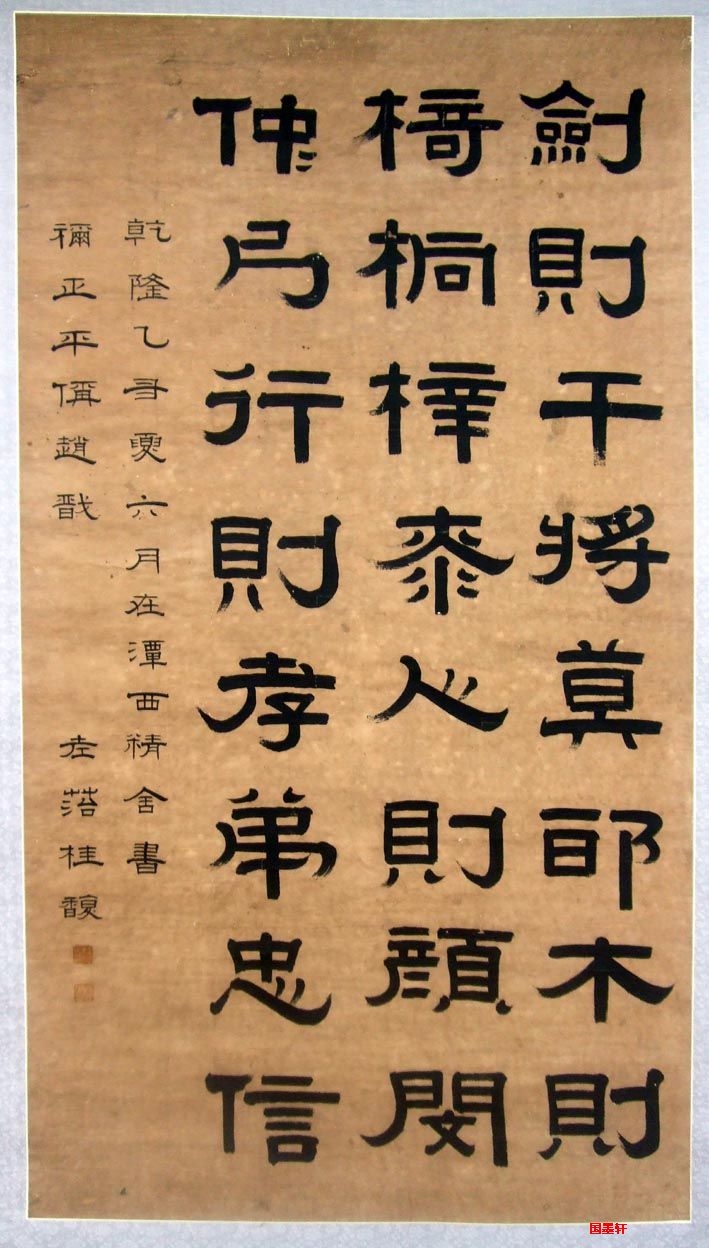 劍則干將莫邪木則
椅桐梓桼人則顏閔
仲弓行則孝弟忠信
乾隆乙卯夏六月在潭西精舍書
禰正平偁趙戩 老菭桂馥
国墨轩